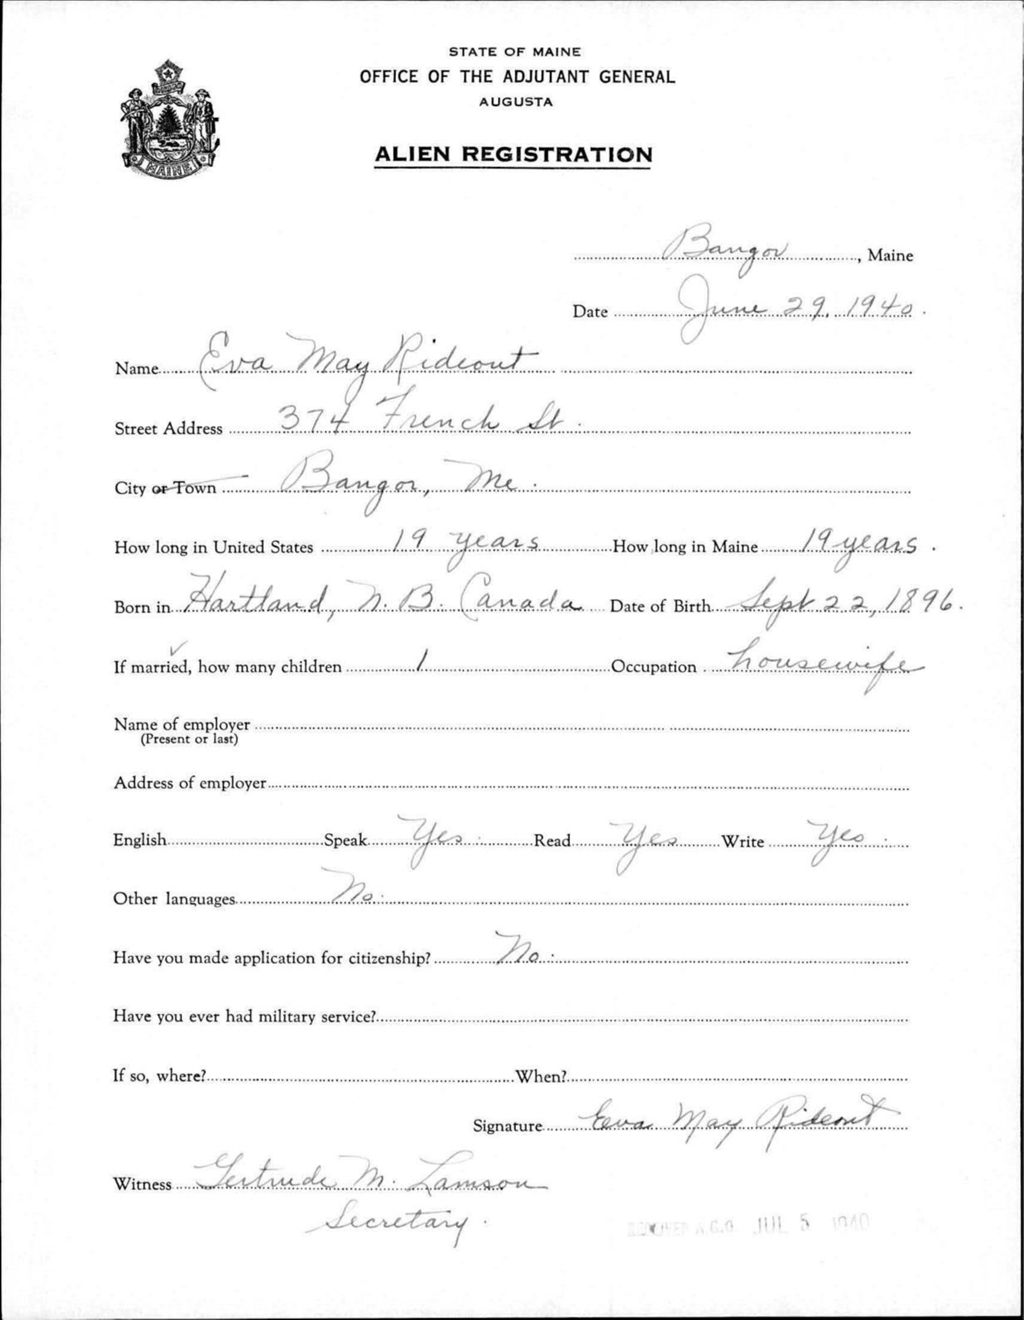 STATE OF MAINE
OFFICE OF THE ADJUTANT GENERAL
AUGUSTA
ALIEN REGISTRATION
MAINE
Bangor, Maine
Date June 29, 1940.
Name Eva May Rideout
Street Address 374 French St.
City or Town Bangor, Me.
How long in United States 19 years How long in Maine 19 years.
Born in Hartland, N. B. Canada Date of Birth Sept 22, 1896.
✓
If married, how many children 1 Occupation housewife
Name of employer
(Present or last)
Address of employer
English Speak Yes. Read Yes Write Yes.
Other languages No.
Have you made application for citizenship? No.
Have you ever had military service?
If so, where? When?
Signature Eva May Rideout
Witness Gertrude M. Lamson
Secretary.
A.G.O. JUL 5 1940